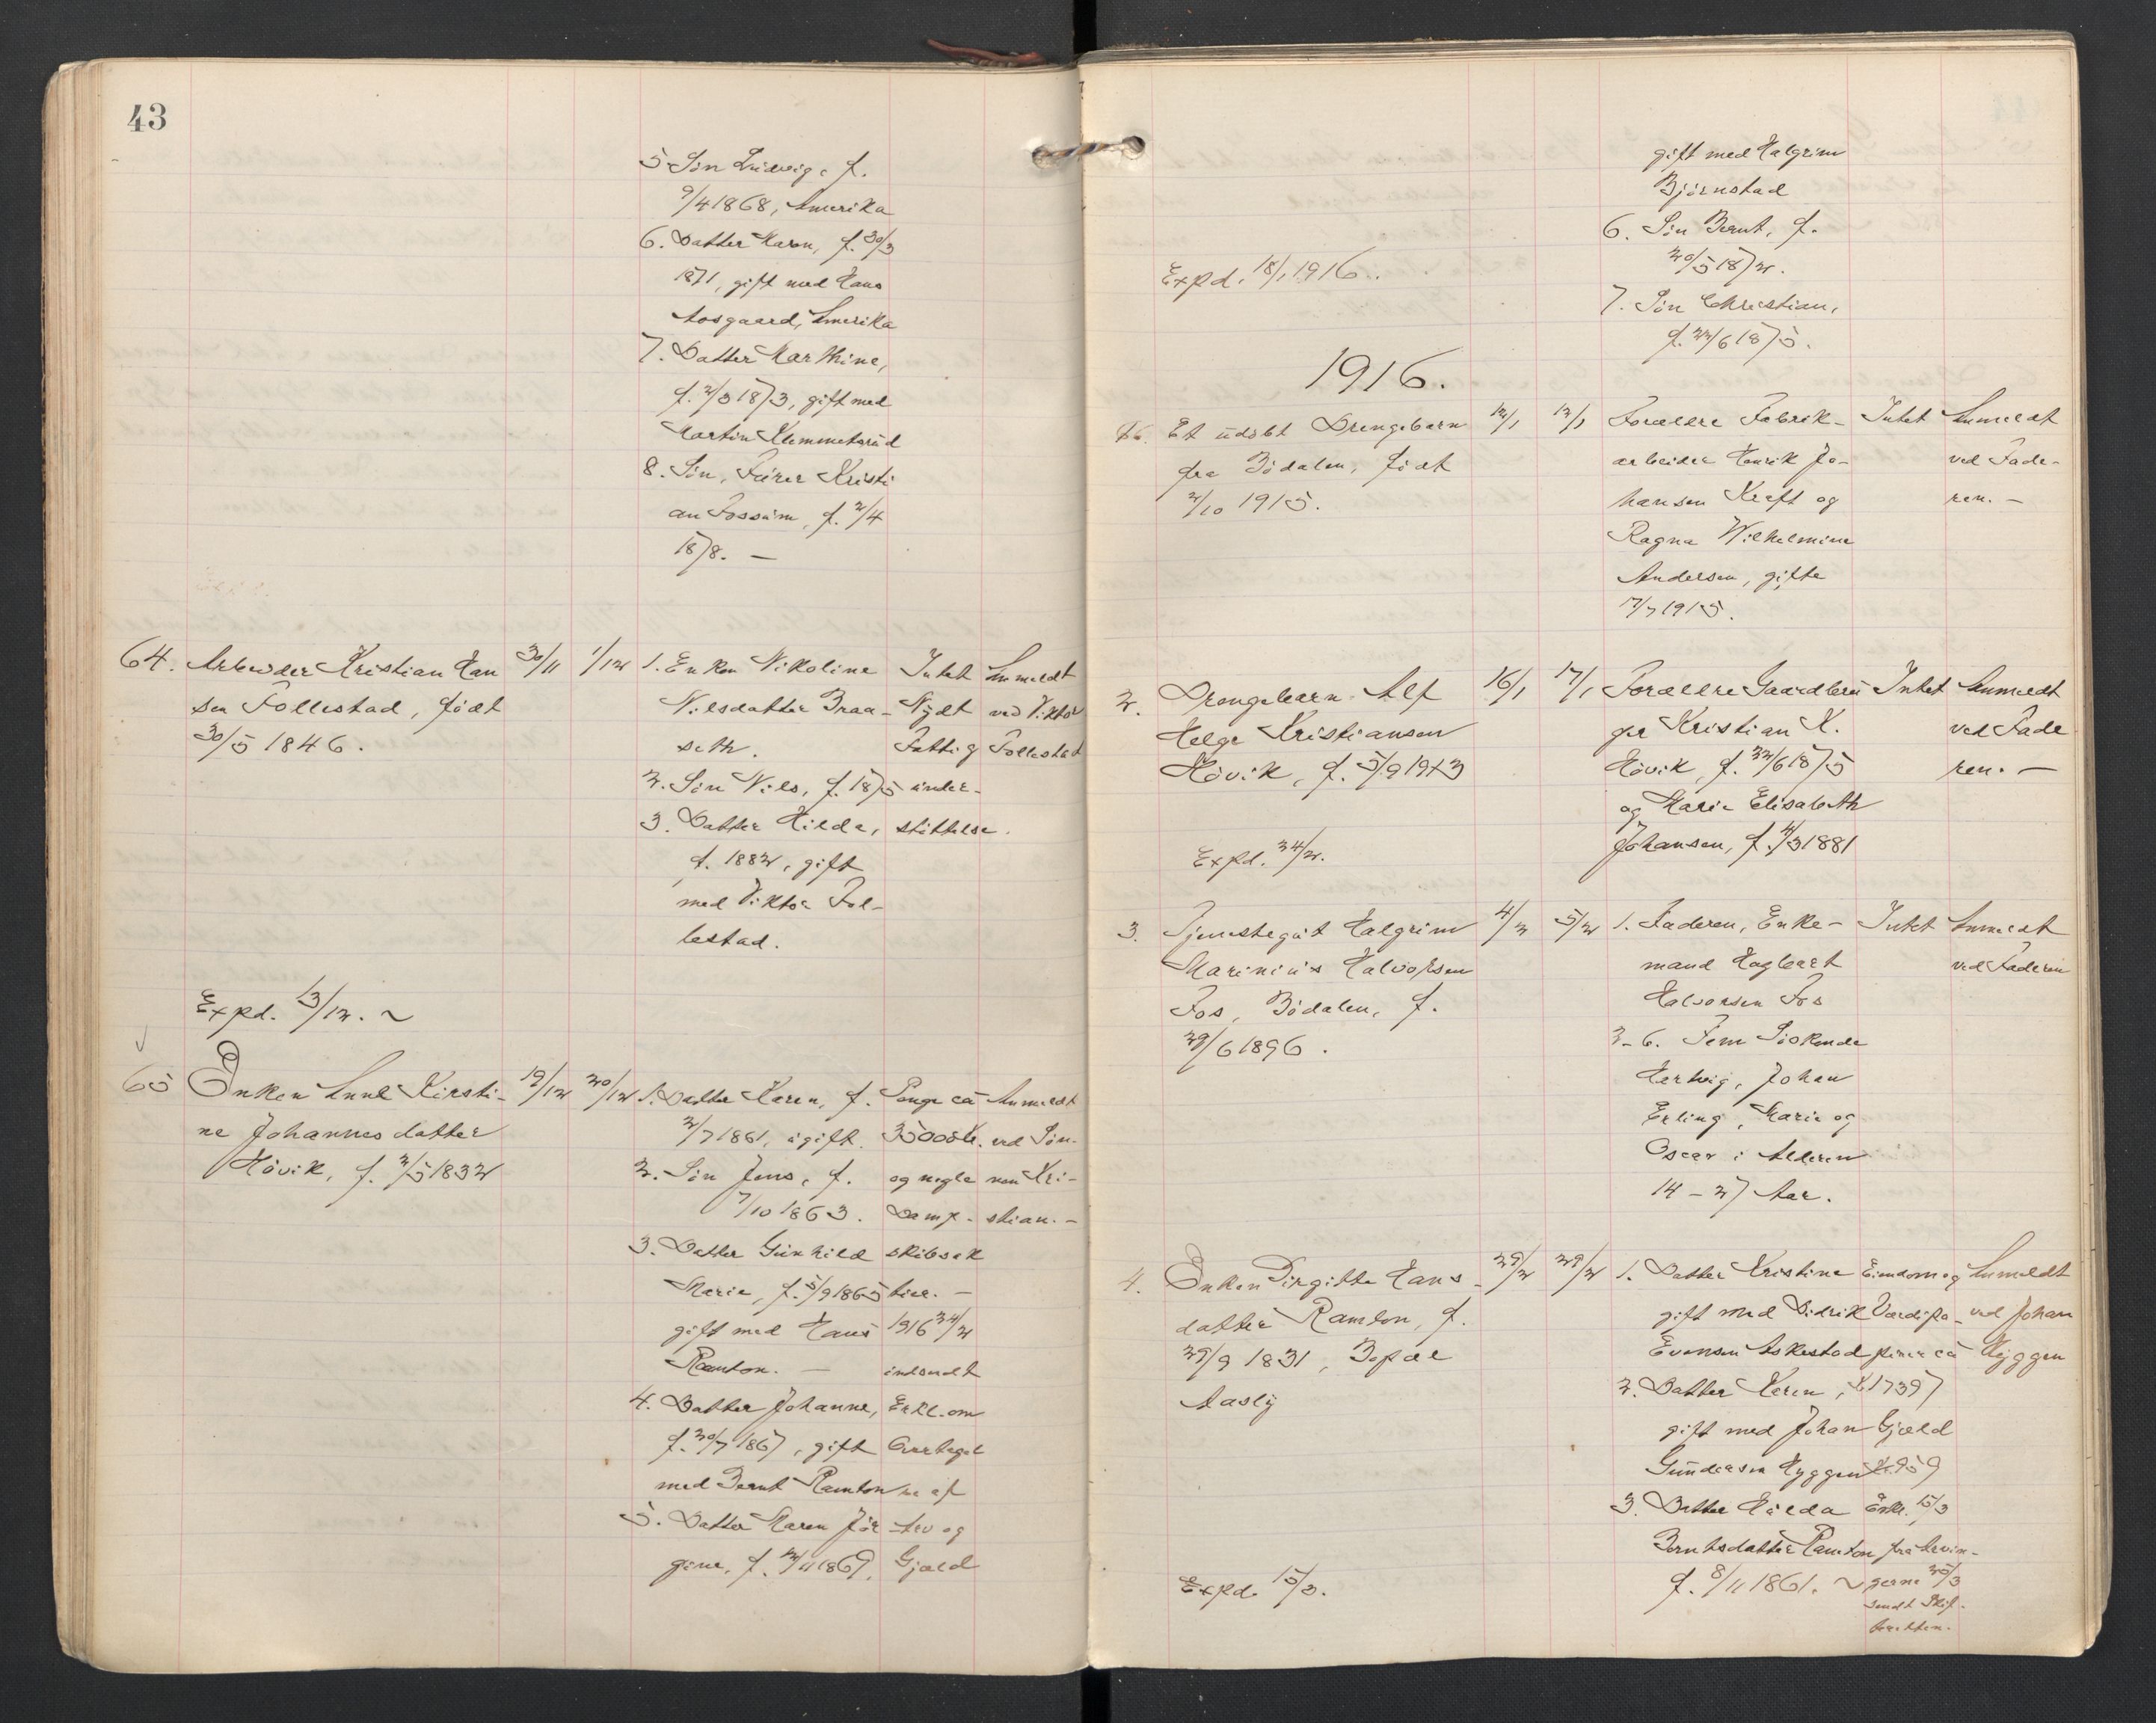 43
5 Sön Ludvig, f.
9/4 1868, Amerika
6. Datter Karen, f. 30/3
1871, gift med Hans
Aosgaard, Amerika
7. Datter Marthine,
f. 2/3 1873, gift med
Martin Klemmetsrud
8. Sön, Furer Kristi
an Fossum, f. 2/4
1878. —
64. Arbeider Kristian Han
sen Follestad, född
30/5 1846.
30/11
1/12
1. Enken Nikoline
Nilsdatter Braa-
seth.
2. Sön Nils, f. 1875
3. Datter Hilda,
f. 1882, gift
med Viktor Fol-
lestad.
Intet
Nydt
Fattig
under-
stöttelse.
Anmeldt
ved Viktor
Follestad
Expd. 13/12. ~
65 Enken Anne Kirsti-
ne Johannesdatter
Hövik, f. 2/5 1832
19/12
20/12
1. Datter Karen, f.
2/7 1861, ugift.
2. Sön Jens, f.
7/10 1863.
3. Datter Gunhild
Marie, f. 5/9 1865
gift med Hans
Ramton. —
4. Datter Johanne,
f. 30/7 1867, gift
med Bernt Ramton
5. Datter Maren Jör
gine, f. 12/11 1869.
Penge ca
3500 Kr.
og nogle
Damp-
skibsak
tier. —
1916 24/2
indsendt
Erkl. om
Overtagel
se af
Arv og
Gjæld
Anmeldt
ved Sön-
nen Kri-
stian. —
gift med Halgrim
Björnstad
6. Sön Bernt, f.
20/5 1872.
7. Sön Christian,
f. 22/6 1875.
Expd. 18/1 1916.
1916.
Et udöbt Drengebarn
fra Bödalen, födt
2/10 1915.
12/1
13/1
Forældre Fabrik-
arbeider Henrik Jo-
hansen Kraft og
Ragna Wilhelmine
Andersen, gifte
17/7 1915.
Intet
Anmeldt
ved Fade-
ren. —
2. Drengebarn Alf
Helge Kristiansen
Hövik, f. 5/9 1913
16/1
17/1
Forældre Gaardbru
ger Kristian K.
Hövik, f. 22/6 1875
og Marie Elisabeth
Johansen, f. 4/3 1881
Intet
Anmeldt
ved Fade
ren. —
Expd. 24/2.
3. Tjenestegut Halgrim
Marinius Halvorsen
Fos, Bödalen, f.
29/6 1896.
4/2
5/2
1. Faderen, Enke-
mand Hagbart
Halvorsen Fos
2-6. Fem Söskende
Hertvig, Johan
Erling, Marie og
Oscar i Alderen
14 – 27 Aar.
Intet
Anmeldt
ved Faderen
4. Enken Birgitte Hans-
datter Ramton, f.
29/9 1831, Bopæl
Aasly
29/2
29/2
1. Datter Kristine
gift med Didrik
Evensen Askestad
2. Datter Karen,
gift med Johan
Gundersen Hyggen
3. Datter Hilda
Berntsdatter Ramton
f. 8/11 1861. ~
Eiendom og
Værdipa-
pirer ca
Kr 17397
Gjæld
Kr. 959
Erkl. 15/3
fra Arvin-
gerne 25/3
sendt Skif-
teretten.
Anmeldt
ved Johan
Hyggen
Expd. 15/3.